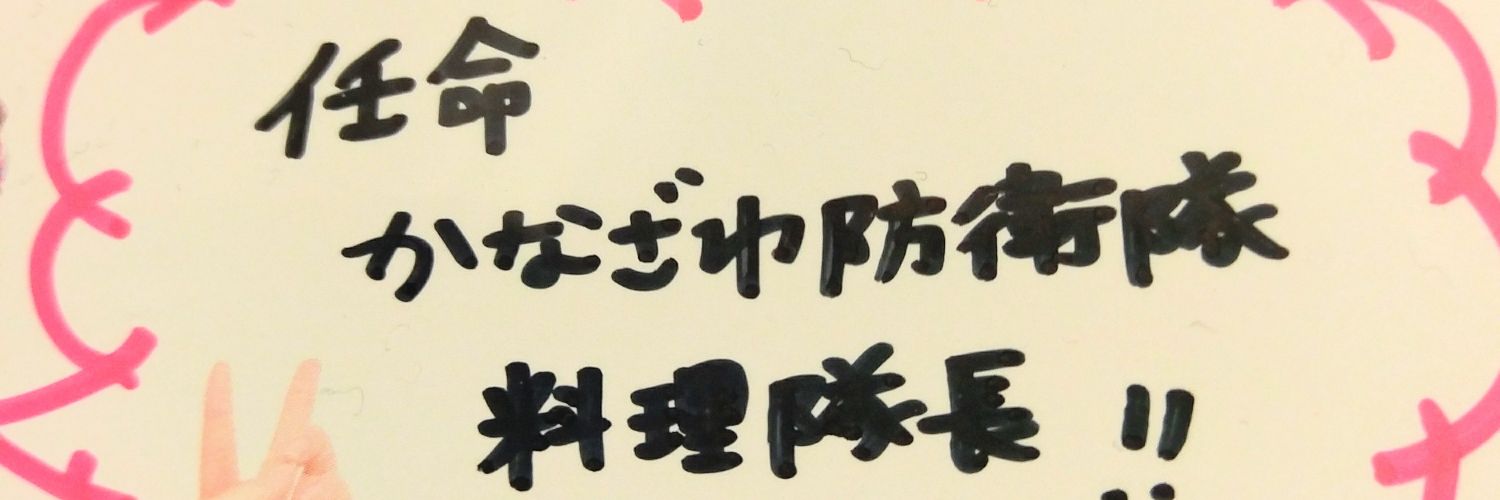 任命
かなざわ防衛隊
料理隊長!!